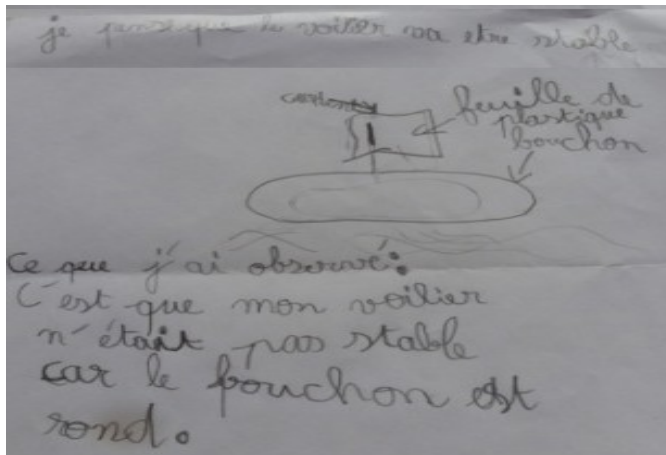 je pense que le voilier va etre stable
feuille de
plastique
bouchon
Ce que j'ai observé:
C'est que mon voilier
n'était pas stable
car le bouchon est
rond.